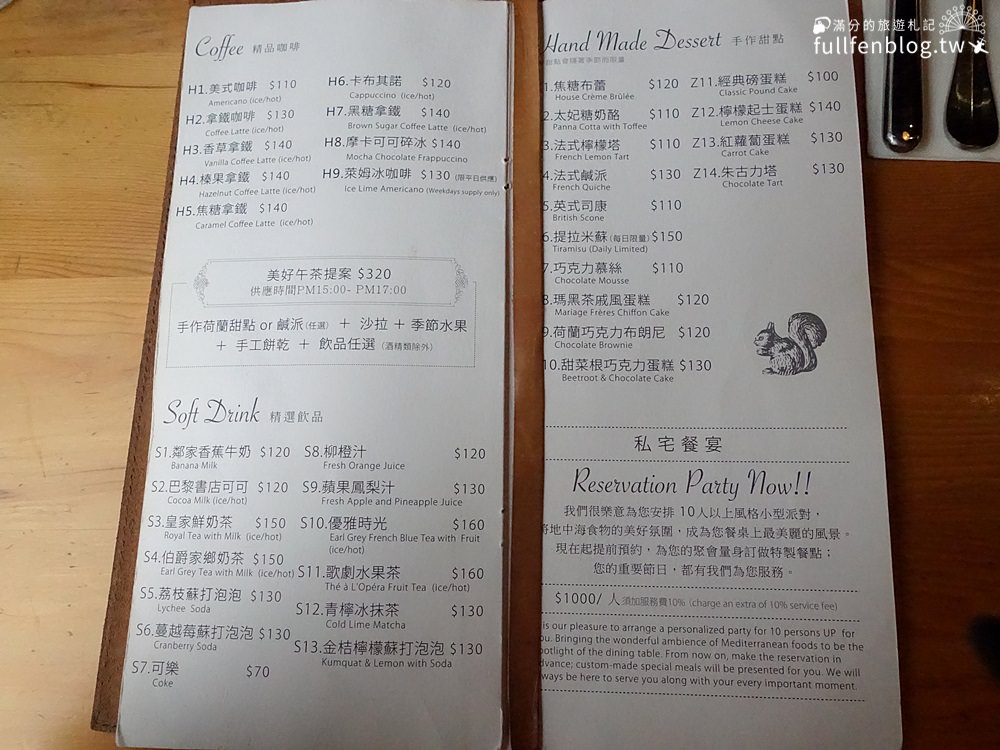 滿分的旅遊札記
fullfenblog.tw
Coffee 精品咖啡
H1.美式咖啡 $110
Americano (ice/hot)
H2.拿鐵咖啡 $130
Coffee Latte (ice/hot)
H3.香草拿鐵 $140
Vanilla Coffee Latte (ice/hot)
H4.榛果拿鐵 $140
Hazelnut Coffee Latte (ice/hot)
H5.焦糖拿鐵 $140
Caramel Coffee Latte (ice/hot)
H6.卡布其諾 $120
Cappuccino (ice/hot)
H7.黑糖拿鐵 $140
Brown Sugar Coffee Latte (ice/hot)
H8.摩卡可可碎冰 $140
Mocha Chocolate Frappuccino
H9.萊姆冰咖啡 $130 (限平日供應)
Ice Lime Americano (Weekdays supply only)
美好午茶提案 $320
供應時間PM15:00- PM17:00
手作荷蘭甜點 or 鹹派(任選) + 沙拉 + 季節水果
+ 手工餅乾 + 飲品任選 (酒精類除外)
Soft Drink 精選飲品
S1.鄰家香蕉牛奶 $120
Banana Milk
S2.巴黎書店可可 $120
Cocoa Milk (ice/hot)
S3.皇家鮮奶茶 $150
Royal Tea with Milk (ice/hot)
S4.伯爵家鄉奶茶 $150
Earl Grey Tea with Milk (ice/hot)
S5.荔枝蘇打泡泡 $130
Lychee Soda
S6.蔓越莓蘇打泡泡 $130
Cranberry Soda
S7.可樂 $70
Coke
S8.柳橙汁 $120
Fresh Orange Juice
S9.蘋果鳳梨汁 $130
Fresh Apple and Pineapple Juice
S10.優雅時光 $160
Earl Grey French Blue Tea with Fruit
(ice/hot)
S11.歌劇水果茶 $160
Thé à L'Opéra Fruit Tea (ice/hot)
S12.青檸冰抹茶 $130
Cold Lime Matcha
S13.金桔檸檬蘇打泡泡 $130
Kumquat & Lemon with Soda
Hand Made Dessert 手作甜點
甜點會隨著季節而限量
1.焦糖布蕾 $110
House Crème Brûlée
2.太妃糖奶酪 $110
Panna Cotta with Toffee
3.法式檸檬塔 $110
French Lemon Tart
4.法式鹹派 $130
French Quiche
5.英式司康 $110
British Scone
6.提拉米蘇(每日限量) $150
Tiramisu (Daily Limited)
7.巧克力慕絲 $110
Chocolate Mousse
8.瑪黑茶戚風蛋糕 $120
Mariage Frères Chiffon Cake
9.荷蘭巧克力布朗尼 $120
Chocolate Brownie
10.甜菜根巧克力蛋糕 $130
Beetroot & Chocolate Cake
Z11.經典磅蛋糕 $100
Classic Pound Cake
Z12.檸檬起士蛋糕 $140
Lemon Cheese Cake
Z13.紅蘿蔔蛋糕 $130
Carrot Cake
Z14.朱古力塔 $130
Chocolate Tart
私宅餐宴
Reservation Party Now!!
我們很樂意為您安排 10人以上風格小型派對，
將地中海食物的美好氛圍，成為您餐桌上最美麗的風景。
現在起提前預約，為您的聚會量身訂做特製餐點；
您的重要節日，都有我們為您服務。
$1000/ 人 須加服務費10% (charge an extra of 10% service fee)
is our pleasure to arrange a personalized party for 10 persons UP for
ou. Bringing the wonderful ambience of Mediterranean foods to be the
potlight of the dining table. From now on, make the reservation in
dvance; custom-made special meals will be presented for you. We will
ways be here to serve you along with your every important moment.